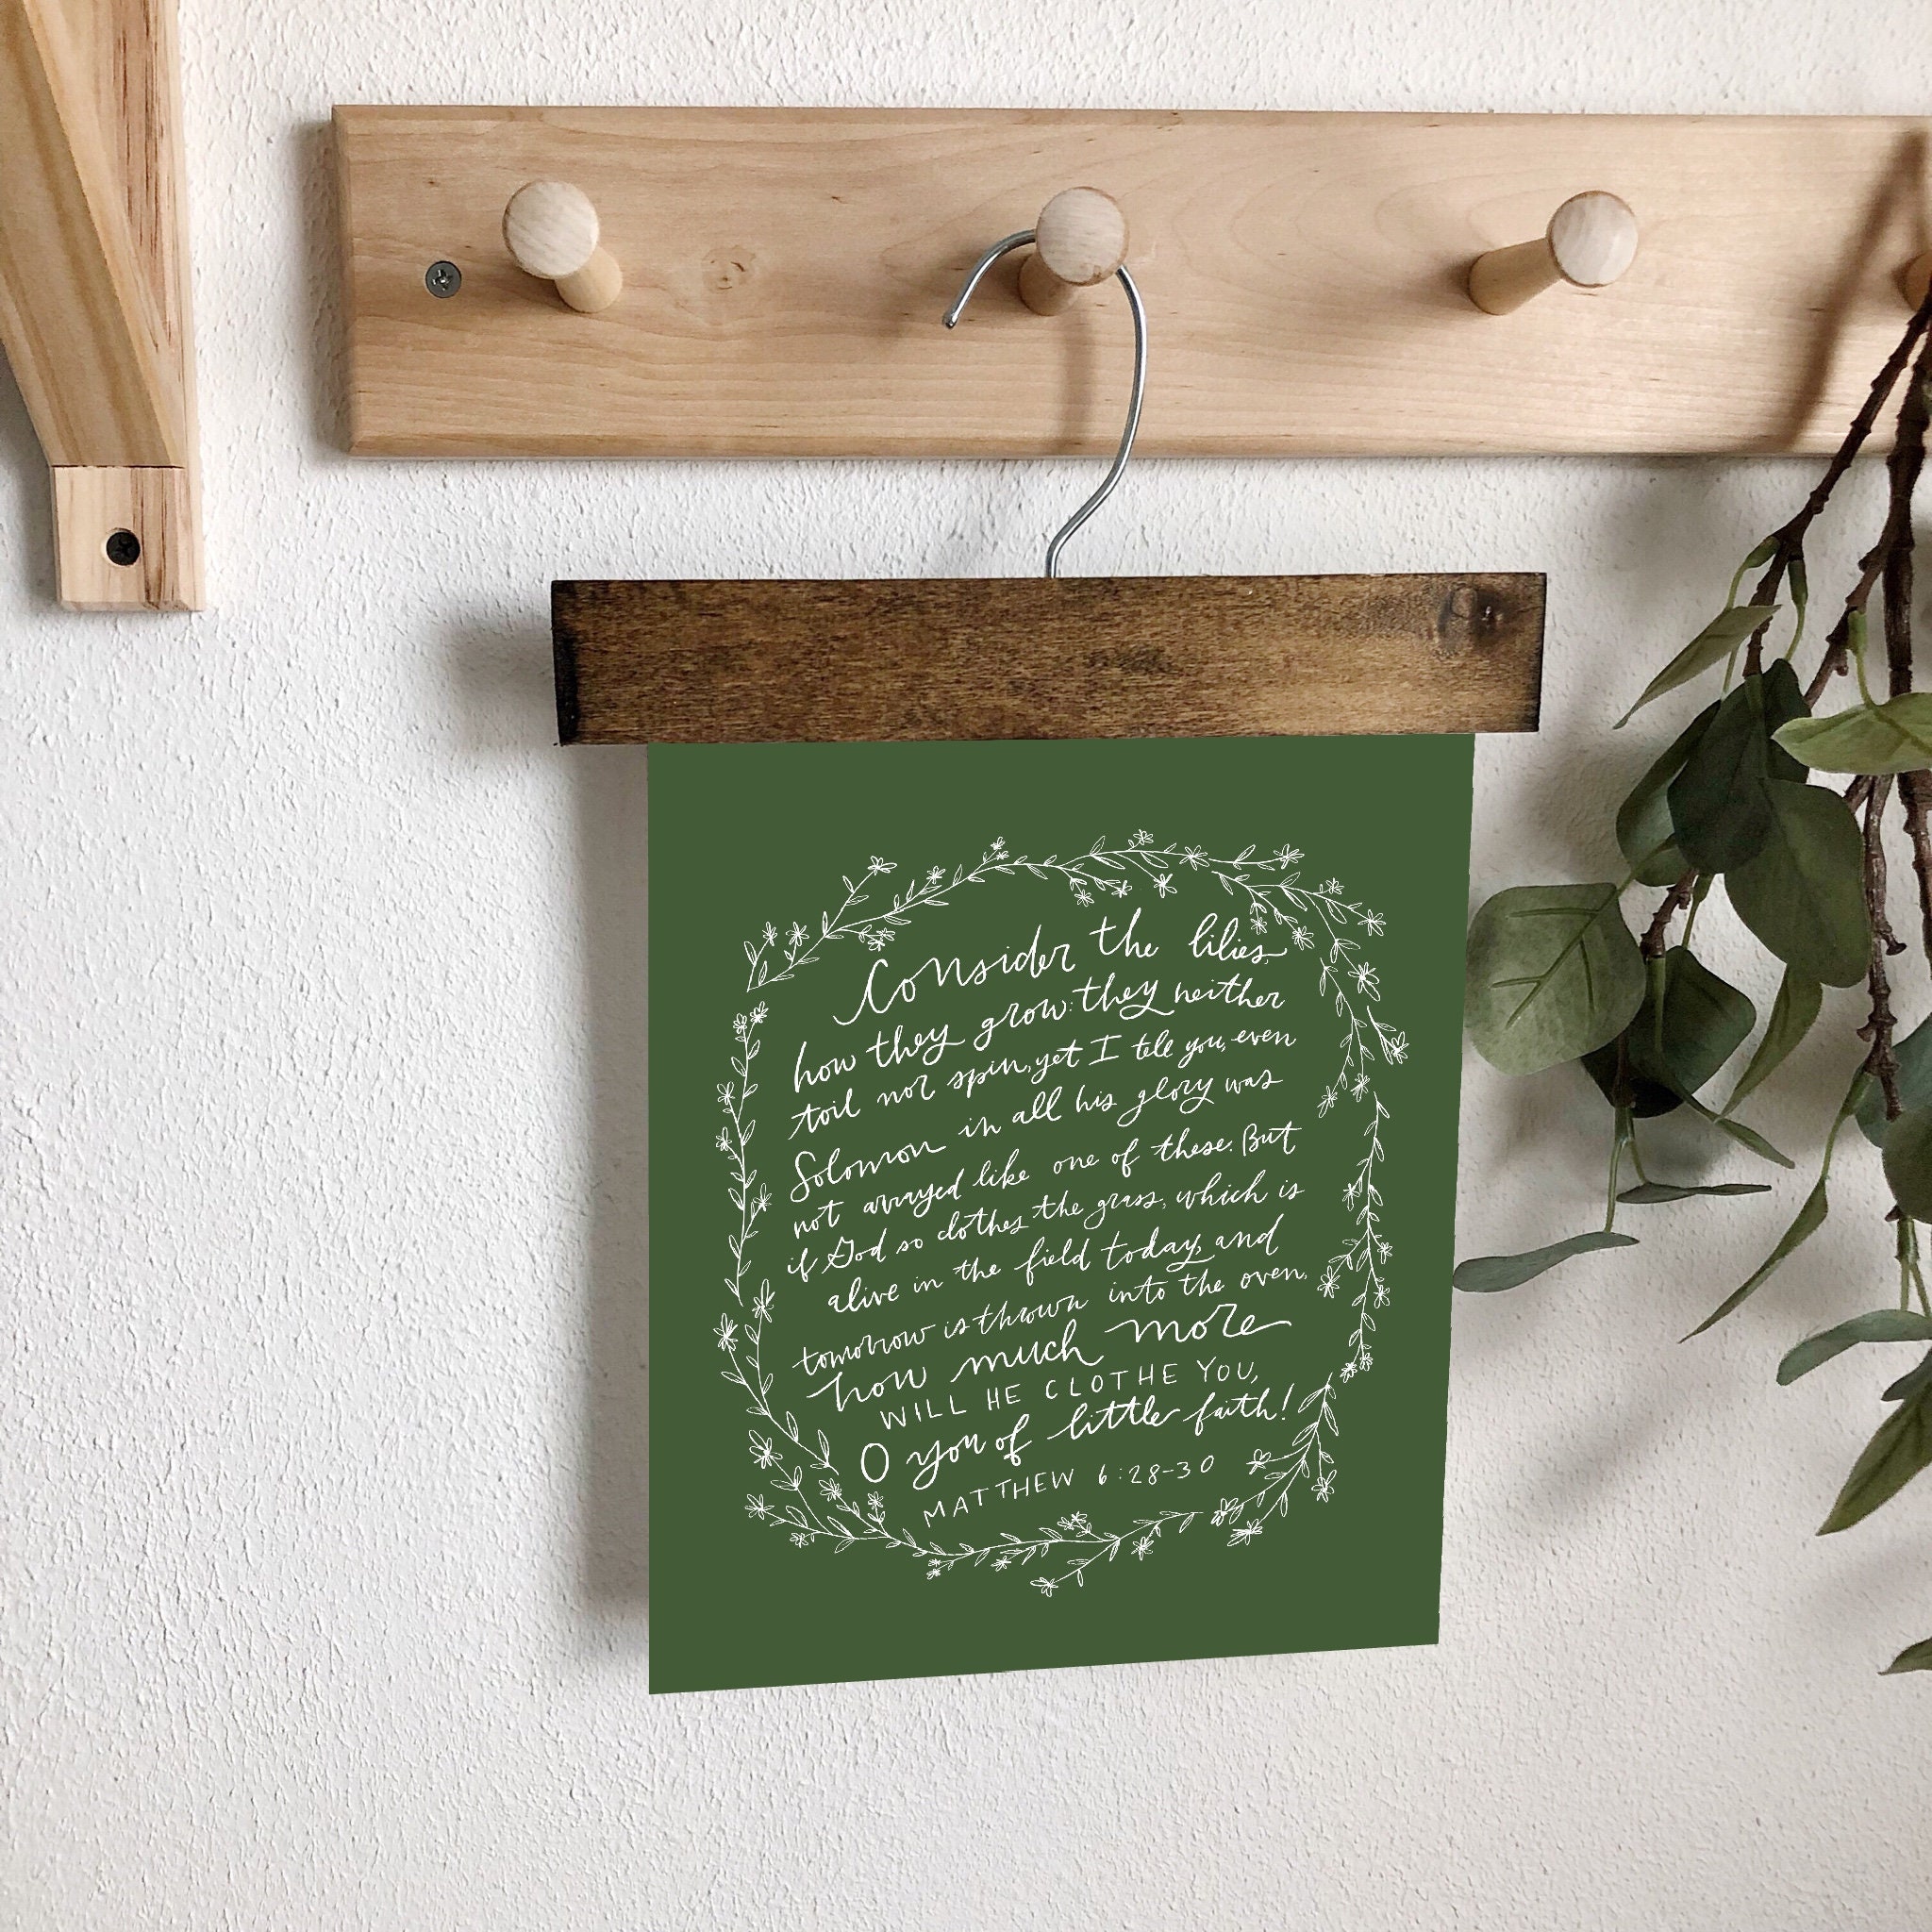 Consider the lilies,
how they grow: they neither
toil nor spin, yet I tell you, even
Solomon in all his glory was
not arrayed like one of these. But
if God so clothes the grass, which is
alive in the field today, and
tomorrow is thrown into the oven,
how much more
WILL HE CLOTHE YOU,
O you of little faith!
MATTHEW 6:28-30